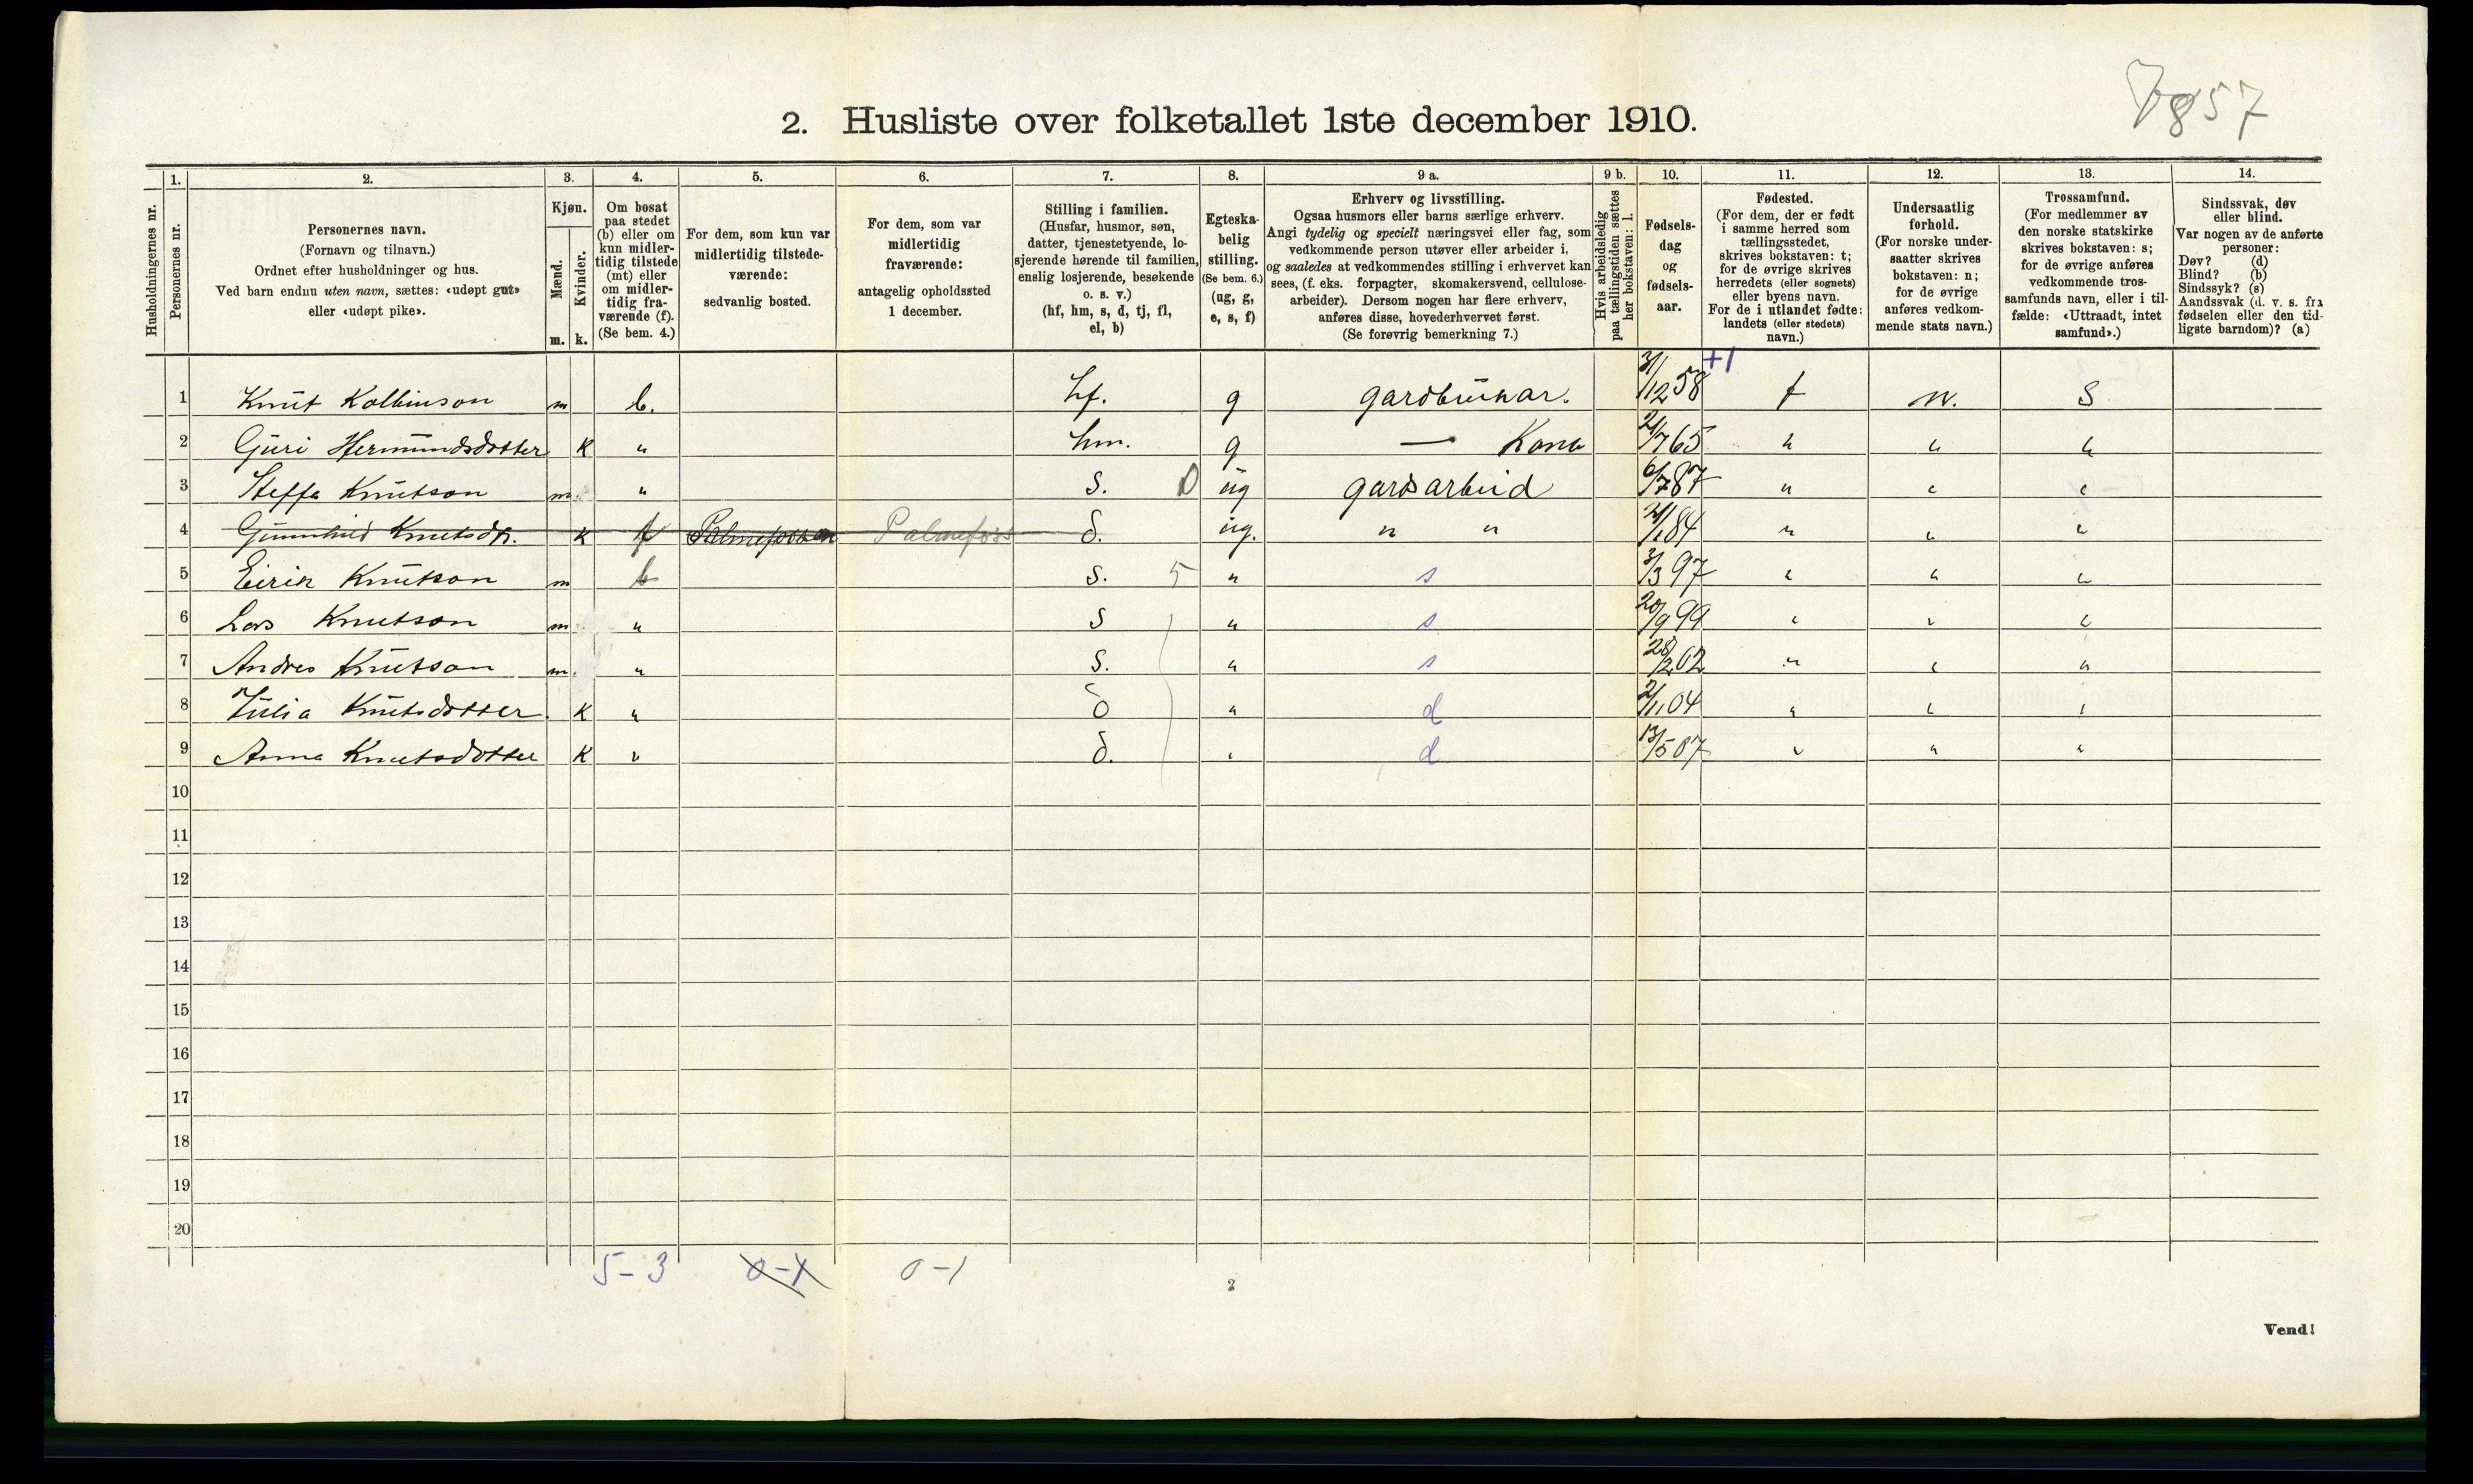 7857
2. Husliste over folketallet 1ste december 1910.
Husholdningernes nr.
1.
Personernes nr.
2.
Personernes navn.
(Fornavn og tilnavn.)
Ordnet efter husholdninger og hus.
Ved barn endnu uten navn, sættes: «udøpt gut»
eller «udøpt pike».
3.
Kjøn.
Mænd.
Kvinder.
m. k.
4.
Om bosat
paa stedet
(b) eller om
kun midler-
tidig tilstede
(mt) eller
om midler-
tidig fra-
værende (f).
(Se bem. 4.)
5.
For dem, som kun var
midlertidig tilstede-
værende:
sedvanlig bosted.
6.
For dem, som var
midlertidig
fraværende:
antagelig opholdssted
1 december.
7.
Stilling i familien.
(Husfar, husmor, søn,
datter, tjenestetyende, lo-
sjerende hørende til familien,
enslig losjerende, besøkende
o. s. v.)
(hf, hm, s, d, tj, fl,
el, b)
8.
Egteska-
belig
stilling.
(Se bem. 6.)
(ug, g,
e, s, f)
9 a.
Erhverv og livsstilling.
Ogsaa husmors eller barns særlige erhverv.
Angi tydelig og specielt næringsvei eller fag, som
vedkommende person utøver eller arbeider i,
og saaledes at vedkommendes stilling i erhvervet kan
sees, (f. eks. forpagter, skomakersvend, cellulose-
arbeider). Dersom nogen har flere erhverv,
anføres disse, hovederhvervet først.
(Se forøvrig bemerkning 7.)
9 b.
Hvis arbeidsledig
paa tællingstiden sættes
her bokstaven: l.
10.
Fødsels-
dag
og
fødsels-
aar.
11.
Fødested.
(For dem, der er født
i samme herred som
tællingsstedet,
skrives bokstaven: t;
for de øvrige skrives
herredets (eller sognets)
eller byens navn.
For de i utlandet fødte:
landets (eller stedets)
navn.)
12.
Undersaatlig
forhold.
(For norske under-
saatter skrives
bokstaven: n;
for de øvrige
anføres vedkom-
mende stats navn.)
13.
Trossamfund.
(For medlemmer av
den norske statskirke
skrives bokstaven: s;
for de øvrige anføres
vedkommende tros-
samfunds navn, eller i til-
fælde: «Uttraadt, intet
samfund».)
14.
Sindssvak, døv
eller blind.
Var nogen av de anførte
personer:
Døv? (d)
Blind? (b)
Sindssyk? (s)
Aandssvak (d. v. s. fra
fødselen eller den tid-
ligste barndom)? (a)
+1
1 Knut Kolbinson m b. hf. g gardbrukar. 31/12 58 t n. S
2 Guri Hermundsdotter K " hm. g — Kona 2/7 65 " " "
3 Steffa Knutson m. " s. D ug gardsarbeid 6/7 87 " " "
4 Gunnhild Knutsdr. K f Palmefossen Palmefoss d. ug. " " 2/1 84 " " "
5 Eirik Knutson m b s. 5 " s 3/3 97 " " "
6 Lars Knutson m " s " s 20/9 99 " " "
7 Andres Knutson m. " s. " s 28/2 02 " " "
8 Julia Knutsdotter. K " d " d 2/1 04 " " "
9 Anna Knutsdotter K " d. " d 13/5 07 " " "
10
11
12
13
14
15
16
17
18
19
20
5-3 0-1 0-1
2
Vend!